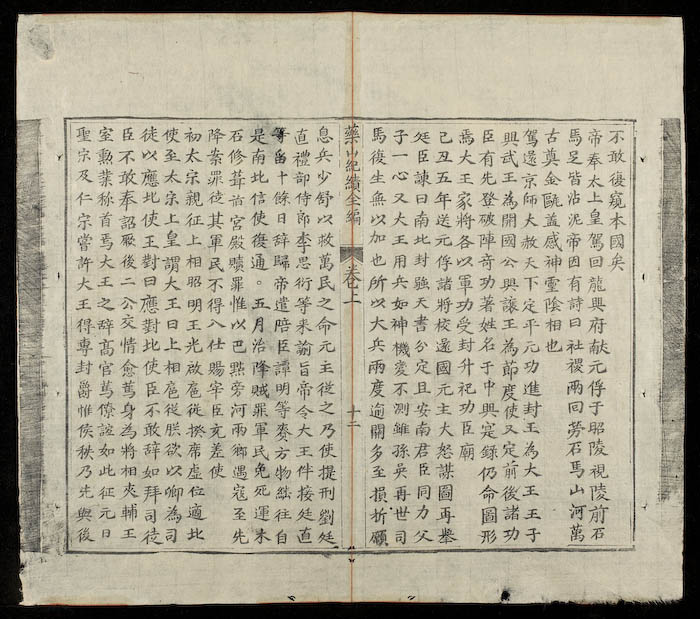 不敢復窺本國矣
帝奉太上皇駕回龍興府献元俘于昭陵視陵前石
馬足皆沾泥帝因有詩曰社稷兩回劳石馬山河萬
古奠金甌盖感神霊陰相也
駕還京師大赦天下定平元功進封王為大王王子
興武王為開國公興讓王為節度使又定前後諸功
臣有先登破陣奇功著姓名于中興寔錄仍命圖形
焉大王家將各以軍功受封升祀功臣廟
己丑五年送元俘諸將校還國元主大怒謀圖再舉
廷臣諫曰南北封強天書分定且安南君臣同力父
子一心又大王用兵如神機變不測雖孫吳再世司
馬復生無以加也所以大兵兩度逾關多至損折願
藥山紀績全編 卷上 十二
息兵少舒以救萬民之命元主従之乃使提刑劉廷
直禮部侍郎李思衍等来諭旨帝令大王伴接廷直
等畄十餘日辞歸帝遣陪臣譚明等赍方物継往自
是南北信使復通。五月治降賊罪軍民免死運木
石修葺旧宮殿贖罪惟以巴點旁河兩鄉遇寇至先
降案罪徒其軍民不得八仕賜宰臣充差使
初太宗親征上相昭明王光啟扈従揆席虚位適北
使至太宗上皇謂大王曰上相扈従朕欲以卿為司
徒以應北使王對曰應對北使臣不敢辞如拜司徒
臣不敢奉詔厥後二公交情愈篤身為將相夾輔王
室勲業称首焉大王之辞高官篤僚誼如此征元日
聖宗及仁宗嘗許大王得專封爵惟侯秩乃先與後